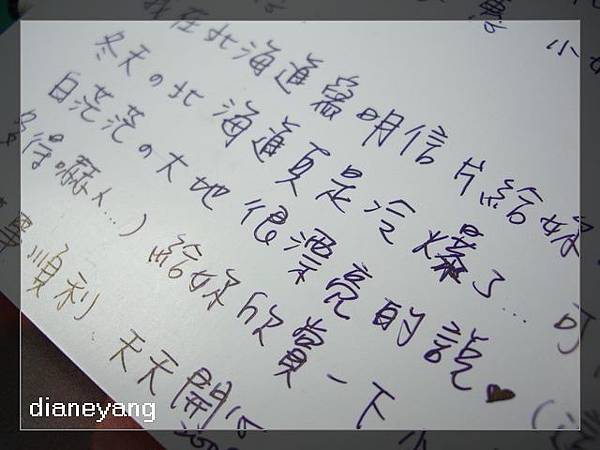 我在北海道寫明信片給妳
冬天の北海道真是冷爆了...可
白茫茫の大地很漂亮的說♥
得嚇人...)給妳欣賞一下
順利、天天開心
小
dianeyang